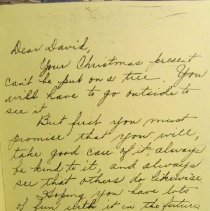 Dear David,
Your Christmas present
can't be put on a tree. You
will have to go outside to
see it.
But first you must
promise that you will,
take good care of it always
be kind to it, and always
see that others do likewise.
Hoping you have lots
of fun with it in the future